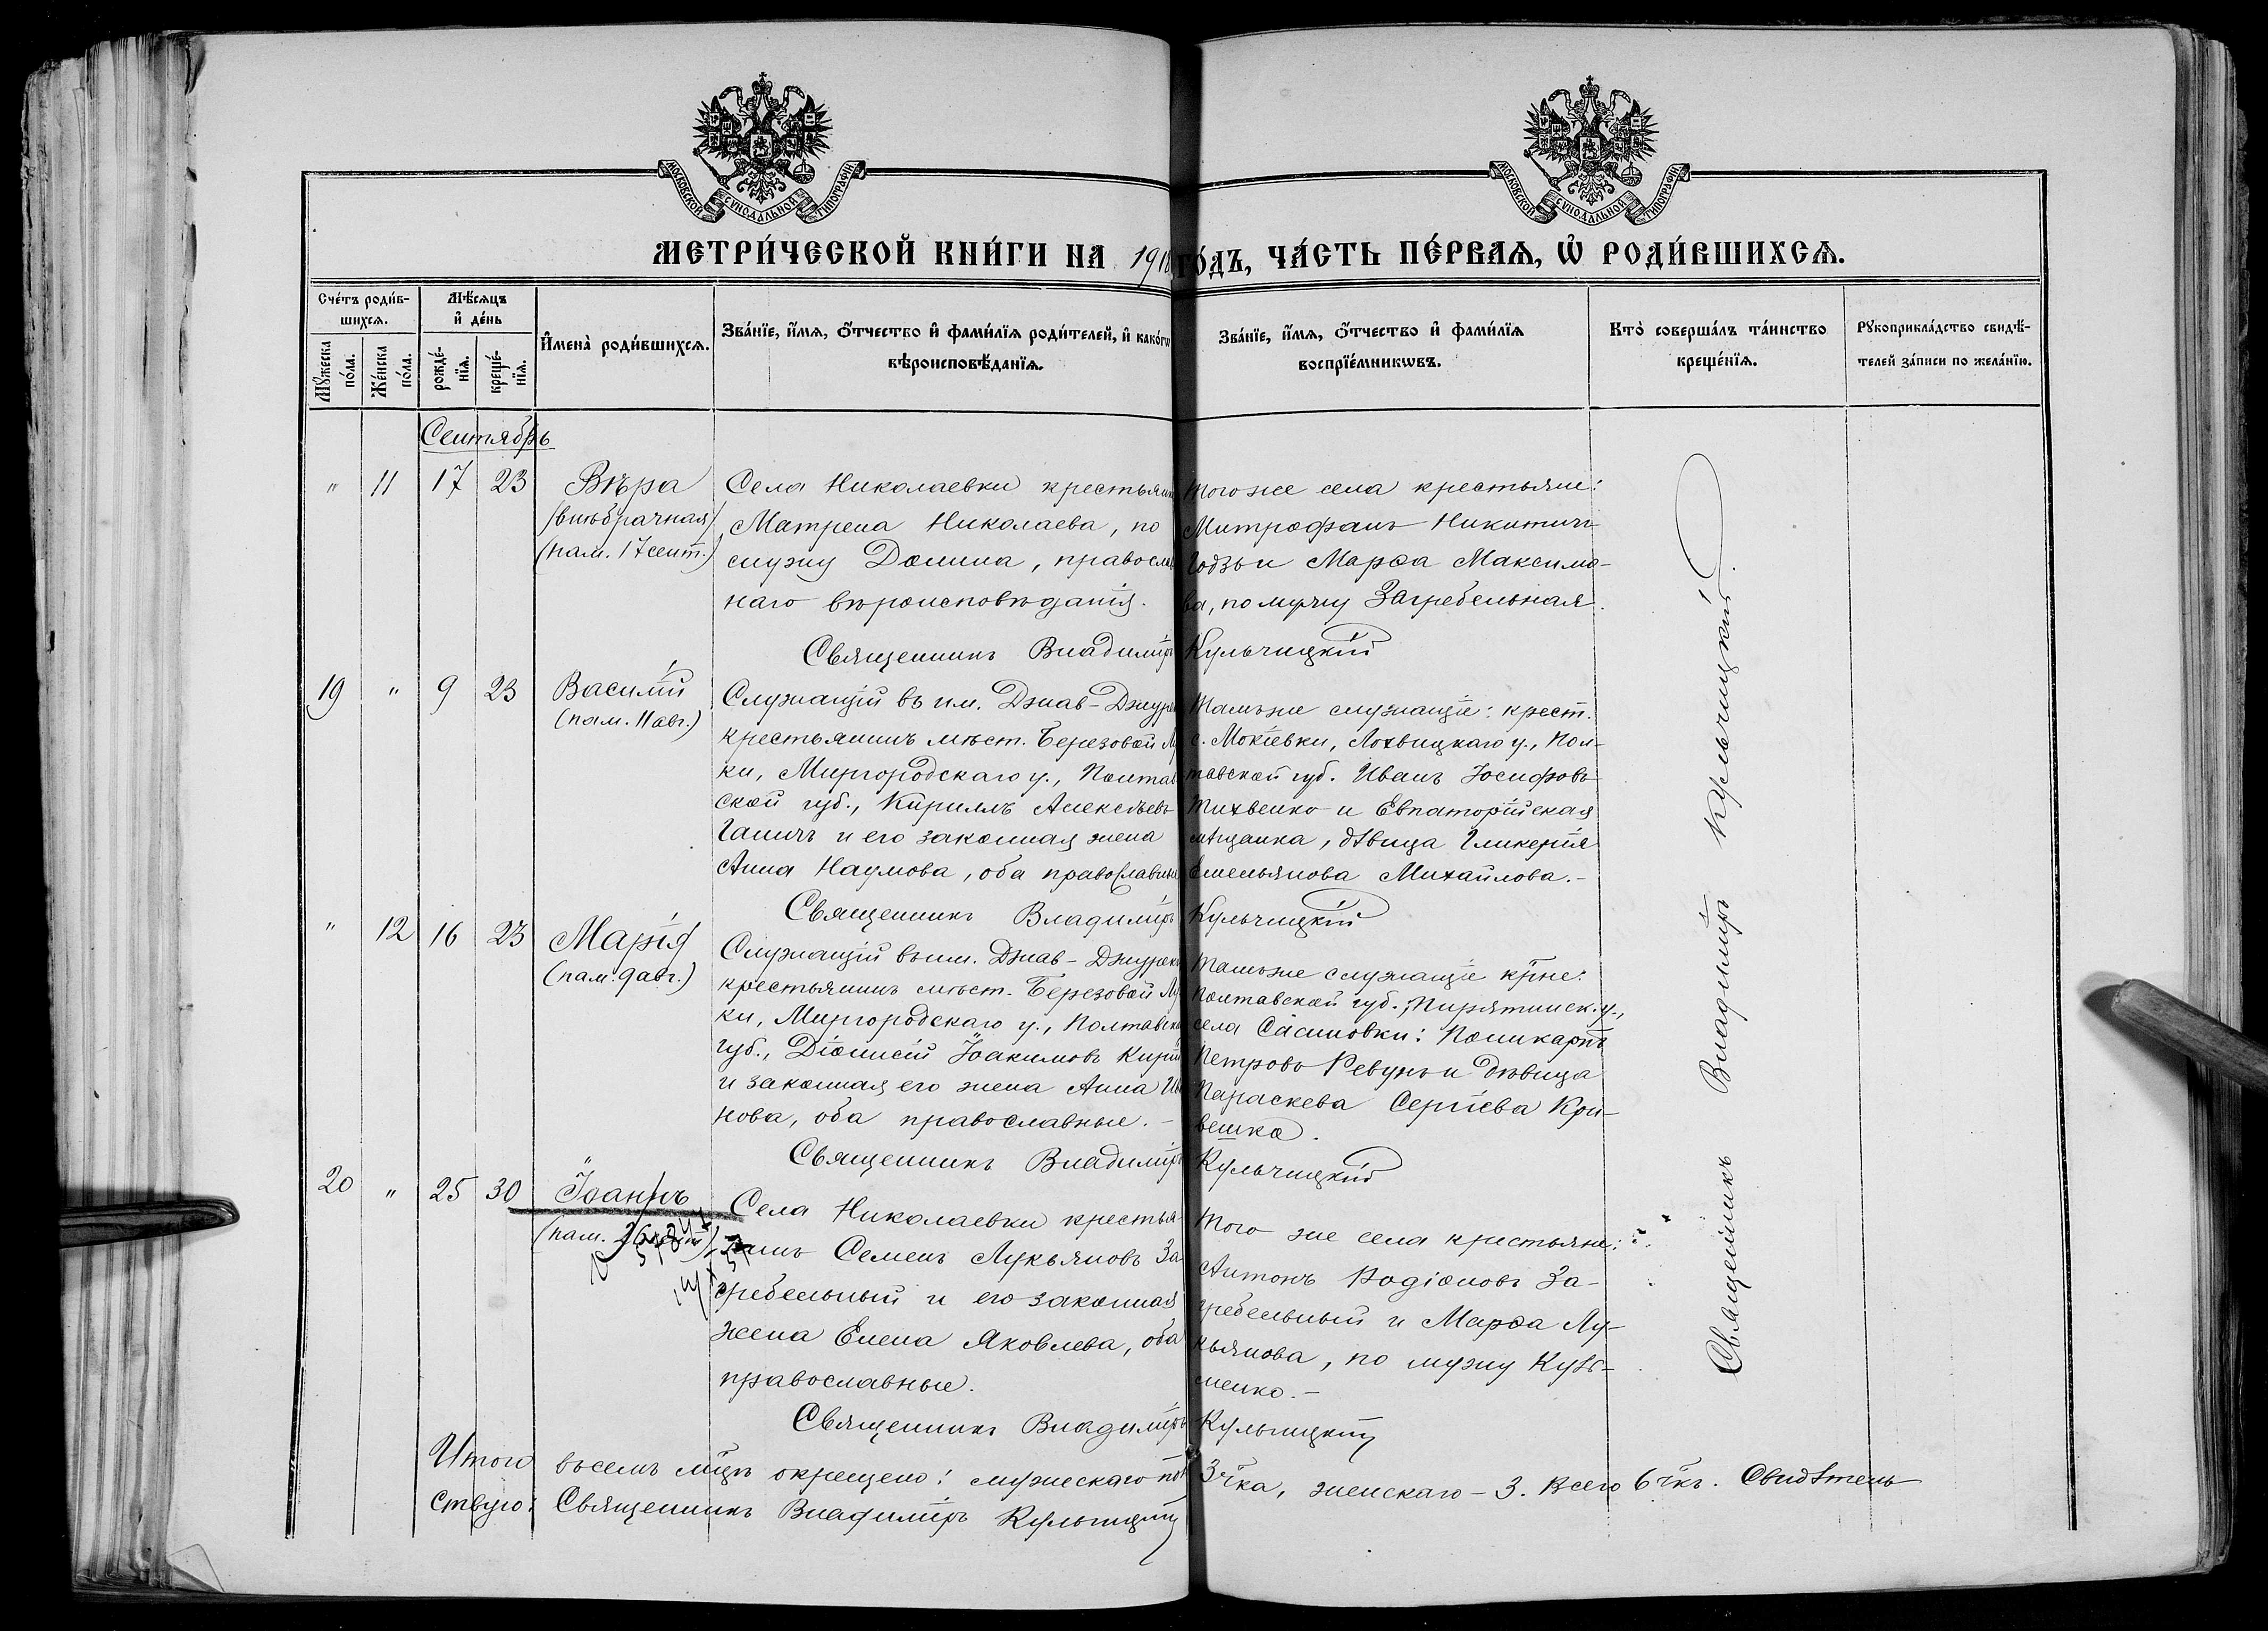 МОСКОВСКОЙ СУНОДАЛЬНОЙ ТИПОГРАФІИ
МОСКОВСКОЙ СУНОДАЛЬНОЙ ТИПОГРАФІИ
МЕТРИ́ЧЕСКОЙ КНИ́ГИ НА 1910 ГО́ДЪ, ЧА́СТЬ ПЕ́РВАѦ, Ѡ РОДИ́ВШИХСѦ.
Сче́тъ роди́в-
шихсѧ.
Мꙋ́жеска по́ла.
Же́нска по́ла.
Мѣ́сѧцъ
и҆ де́нь
рожде́-
нїѧ.
креще́-
нїѧ.
И҆мена̀ роди́вшихсѧ.
Зва́нїе, и҆́мѧ, ѻ҆́тчество и҆ фами́лїѧ роди́телей, и҆ како́гѡ
вѣроисповѣ́данїѧ.
Зва́нїе, и҆́мѧ, ѻ҆́тчество и҆ фами́лїѧ
воспрїе́мникѡвъ.
Кто̀ соверша́лъ та́инство
креще́нїѧ.
Рꙋкоприкла́дство свидѣ́-
телей за́писи по жела́нїю.
Сентябрь
" 11 17 23 Вѣра
(внѣбрачная)
(пам. 17 сент.)
Села Николаевки крестьянк
Матрена Николаева, по
мужу Домина, правосла
наго вѣроисповѣданія.
Того же села крестьяне:
Митрофанъ Никитинъ
и Марѳа Максимо-
ва, по мужу Загребельная.
Священникъ Владиміръ Кульчицкій
19 " 9 23 Василій
(пам. 11 авг.)
Служащій въ им. Джав-Джур
крестьянинъ мѣст. Березовой Лу
ки, Миргородскаго у., Полтав
ской губ., Кириллъ Алексѣевъ
Ганичъ и его законная жена
Анна Наумова, оба православные
Тамъ же служащіе: крест.
с. Мокіевки, Лохвицкаго у., Пол-
тавской губ. Иванъ Іосифовъ
Тихвенко и Евпаторійская
мѣщанка, дѣвица Гликерія
Емельянова Михайлова.-
Священникъ Владиміръ Кульчицкій
" 12 16 23 Марія
(пам. 9 авг.)
Служащій въ им. Джав-Джурек
крестьянинъ мѣст. Березовой Лу
ки, Миргородскаго у., Полтавско
губ., Діонисій Іоакимовъ Кири
и законная его жена Анна Ив
нова, оба православные.-
Тамъ же служащіе кр̃не:
Полтавской губ., Пирятинск. у.,
села Сасиновки: Поликарпъ
Петровъ Ревунъ и дѣвица
Параскева Сергіева Кри-
вешко.
Священникъ Владиміръ Кульчицкій
20 " 25 30 Іоаннъ
(пам. 26 сент.)
Села Николаевки крестья-
нинъ Семенъ Лукьяновъ За
гребельный и его законная
жена Елена Яковлева, оба
православные.
Того же села крестьяне:
Антонъ Родіоновъ За-
гребельный и Марѳа Лу-
кьянова, по мужу Кузь-
менко.-
Священникъ Владиміръ Кульчицкій
Священникъ Владиміръ Кульчицкій.
Итого восемь лицъ окрещено: мужескаго пол 3 ч̃ка, женскаго - 3. Всего 6 ч̃къ. Свидѣтель-
ствую: Священникъ Владиміръ Кульчицкій